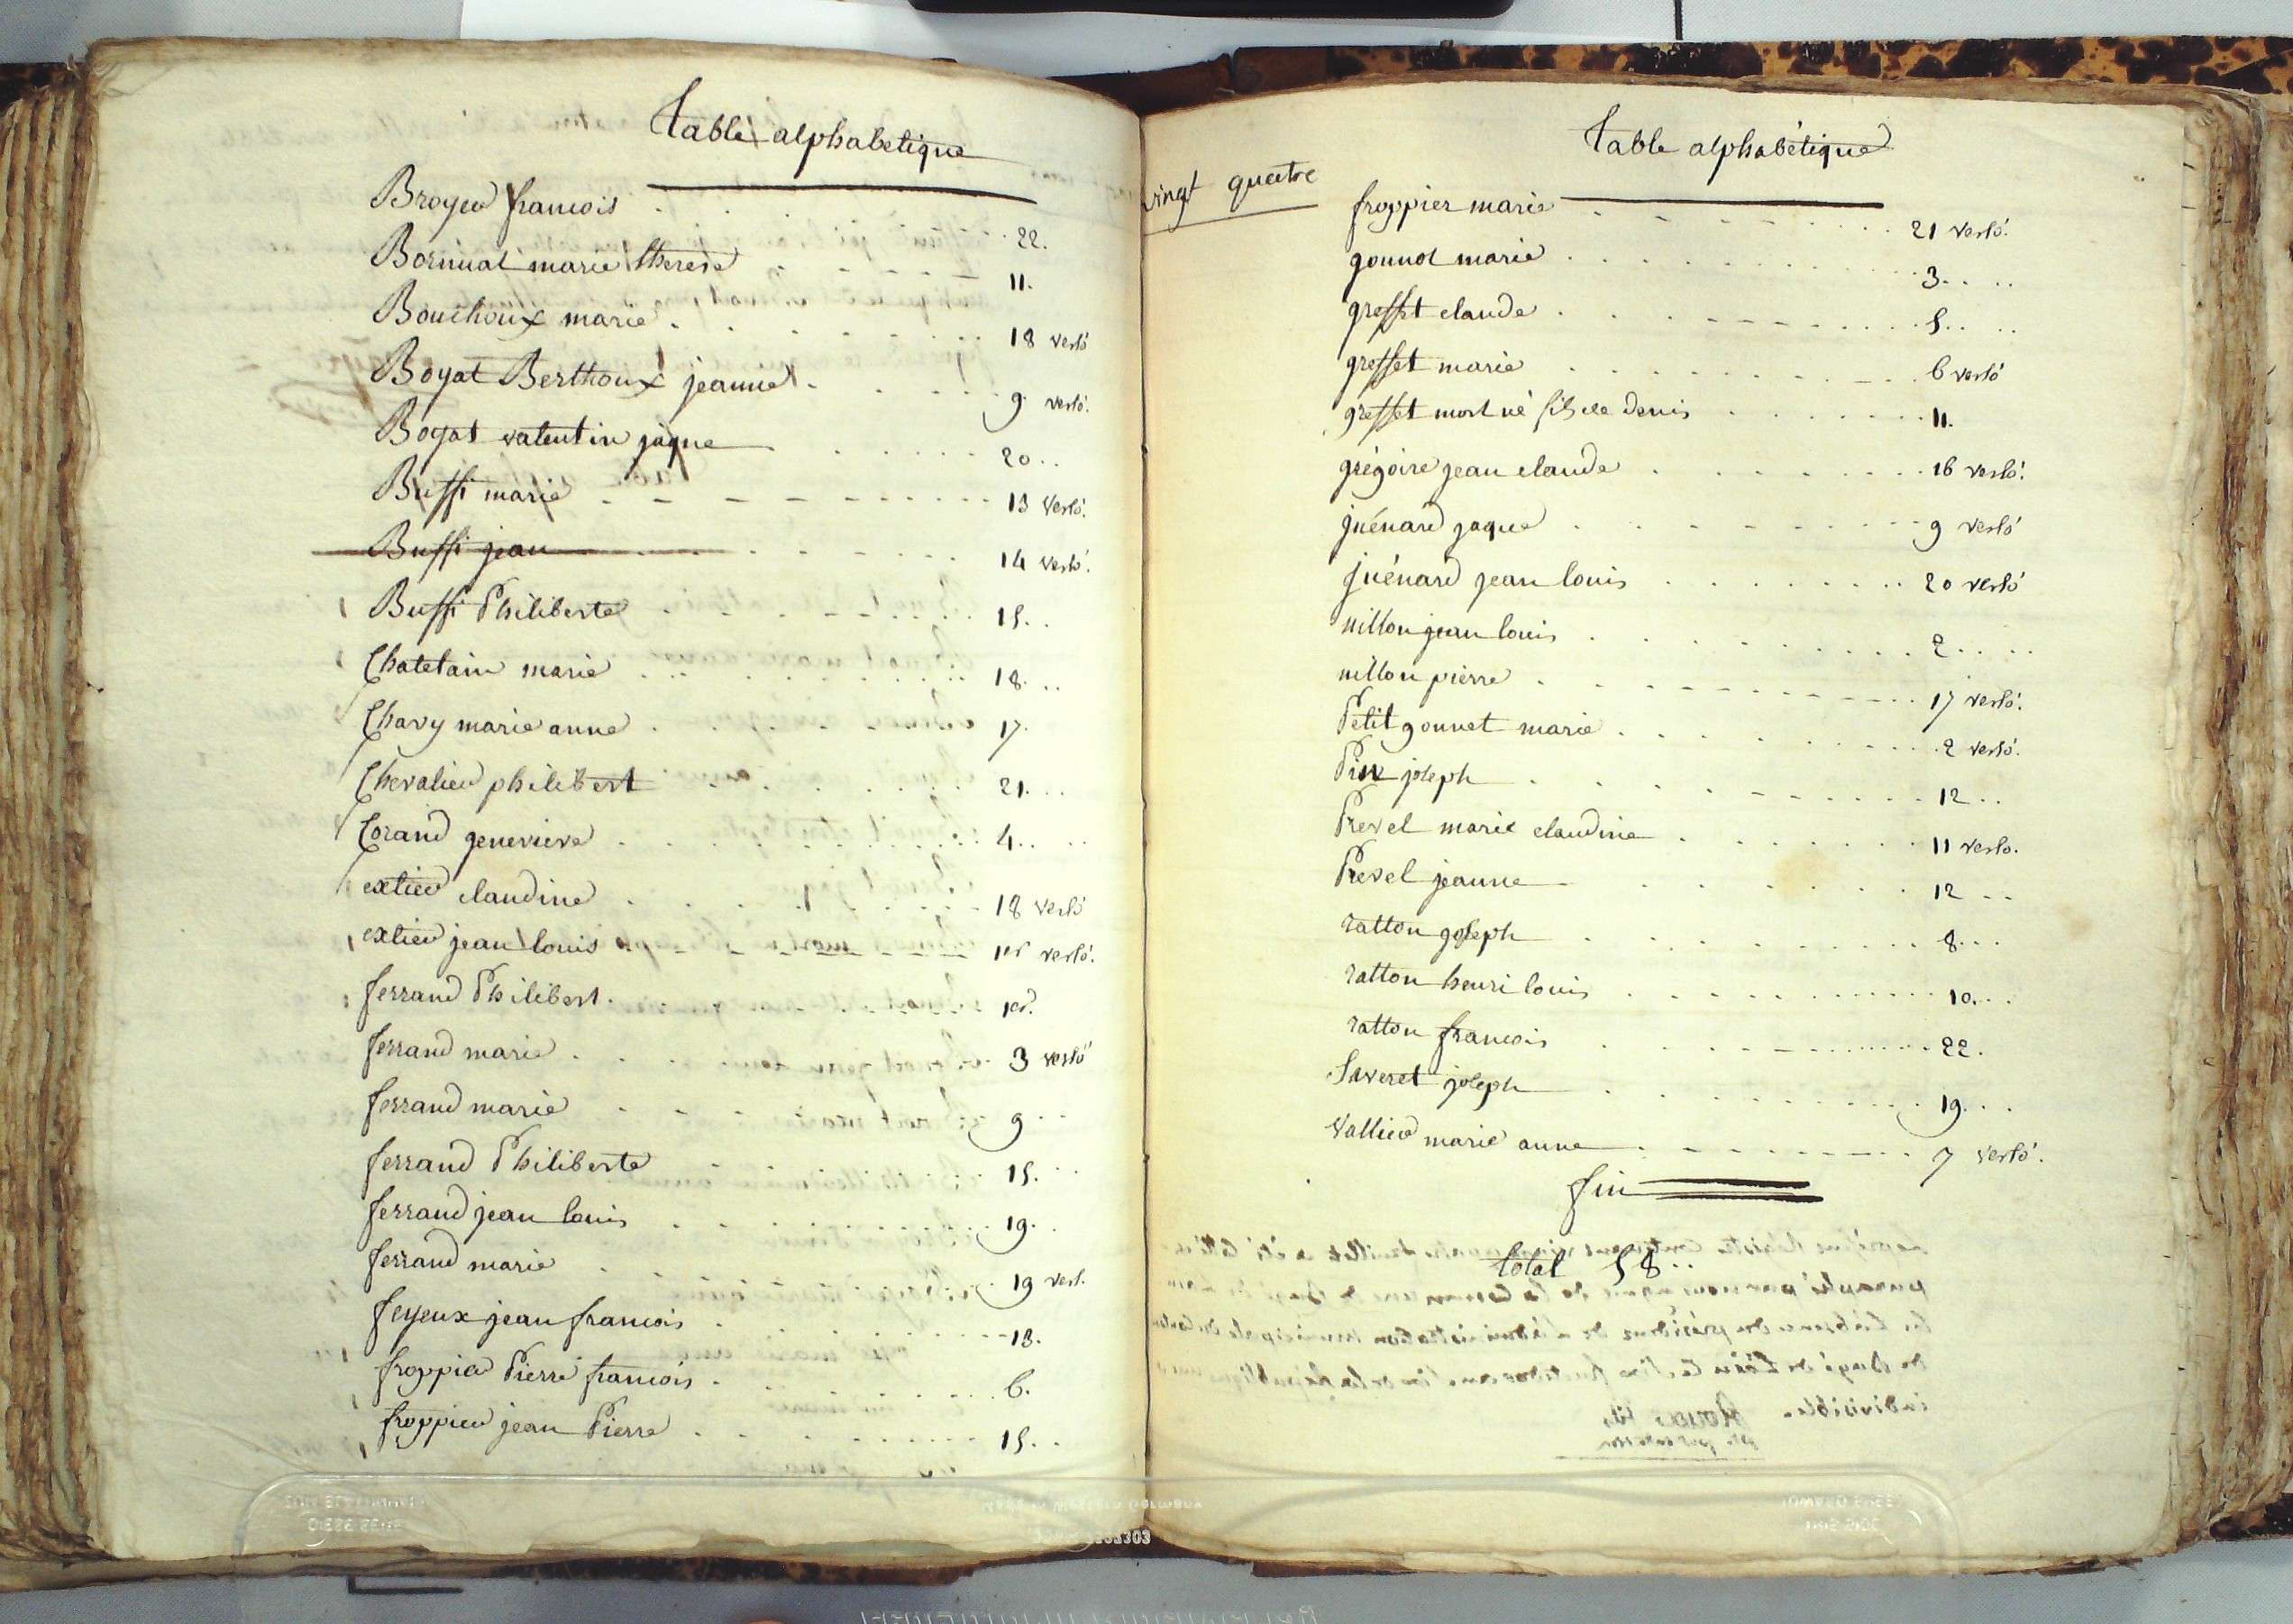 Table alphabetique
Broyer francois . . . 22.
Bornuat marie therese . . . 11.
Bouchoux marie . . . 18 verso
Boyat Berthoux jeanne . . . 9 verso.
Boyat valentin jaque . . . 20 . .
Buffi marie . . . 13 verso.
Buffi jean . . . 14 verso.
Buffi Philiberte . . . 15. .
Chatelain marie . . . 18. . .
Chavy marie anne . . . 17.
Chevalier philibert . . . 21. . .
Corand genevieve . . . 4. . .
extier claudine . . . 18 verso
extier jean louis . . . 1er verso.
ferrand Philibert . 1er.
ferrand marie . . . 3 verso
ferrand marie . . . 9 . .
ferrand Philiberte . . . 15. . .
ferrand jean louis . . . 19. .
ferrand marie . . . 19 vers.
feyeux jean francois . . . 13.
froppier Pierre francois . . . 6.
froppier jean Pierre . . . 15. .
vingt quatre
Table alphabétique
froppier marie . . . 21 verso.
gounot marie . . . 3. . . .
greffet claude . . . 5. . . .
greffet marie . . . 6 verso
greffet mort né fils de denis . . . 11.
grégoire jean claude . . . 16 verso.
juénard jaque . . . 9 verso
juénard jean louis . . . 20 verso
nillon jean louis . . . 2. . . .
nillon pierre . . . 17 verso.
Petit gonnet marie . . . 2 verso.
joseph . . . 12 . .
Prevel marie claudine . . . 11 verso.
Prevel jeanne . . . 12 . .
ratton joseph . . . 8. . .
ratton henri louis . . . 10. . .
ratton francois . . . 22.
Saveret joseph . . . 19. . .
Vallier marie anne . . . 7 verso.
fin
total 58 . .